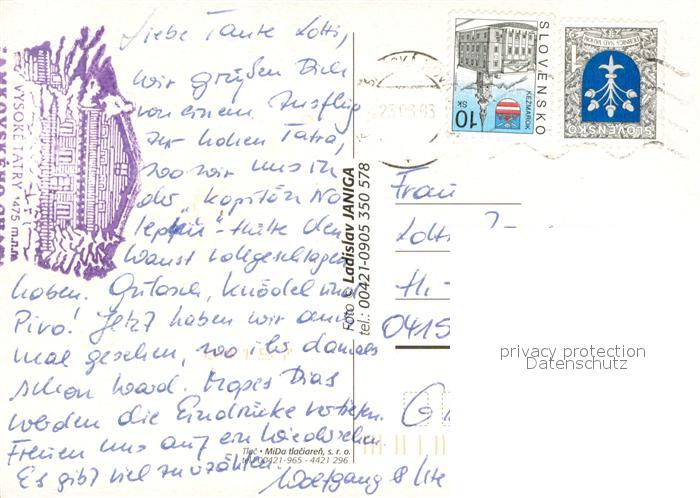 Liebe Tante Lotti,
wir grüßen Dich
von einem Ausflug
zur hohen Tatra,
wo wir uns in
der Kapitän No
-Hütte den
Wanst vollgeschlagen
haben. Gulasch, Knödel und
Pivo! Jetzt haben wir auch
mal gesehen, wo ihr damals
schon ward. Mopes Dias
werden die Eindrücke vertiefen.
Freuen uns auf ein Wiedersehen.
Es gibt viel zu erzählen.
Wolfgang & Ute
VYSOKÉ TATRY 1475 m.n.m
Foto © Ladislav JANIGA
tel.: 00421-0905 350 578
Tlač • MiDa tlačiareň, s. r. o.
tel. 00421-965 - 4421 296
23.06.03
SLOVENSKO
KEŽMAROK
10 Sk
SLOVENSKO
DUBNICA NAD VÁHOM
Frau
Lotti
H.-
0415
privacy protection
Datenschutz